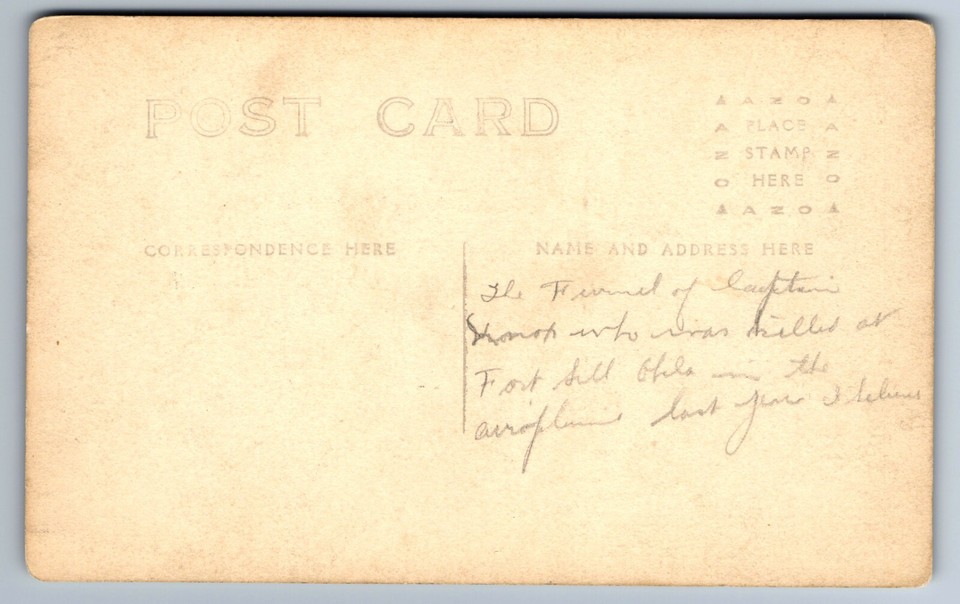 POST CARD
▲ A Z O ▲
A PLACE A
Z STAMP Z
O HERE O
▲ A Z O ▲
CORRESPONDENCE HERE
NAME AND ADDRESS HERE
The Furnel of Captain
who was killed at
Fort Sill Okla in the
airoplane last year I believe